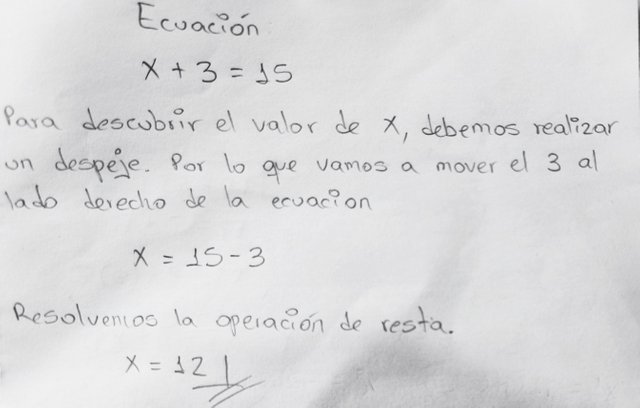 Ecuación
x + 3 = 15
Para descubrir el valor de x, debemos realizar
un despeje. Por lo que vamos a mover el 3 al
lado derecho de la ecuacion
x = 15 - 3
Resolvemos la operación de resta.
x = 12